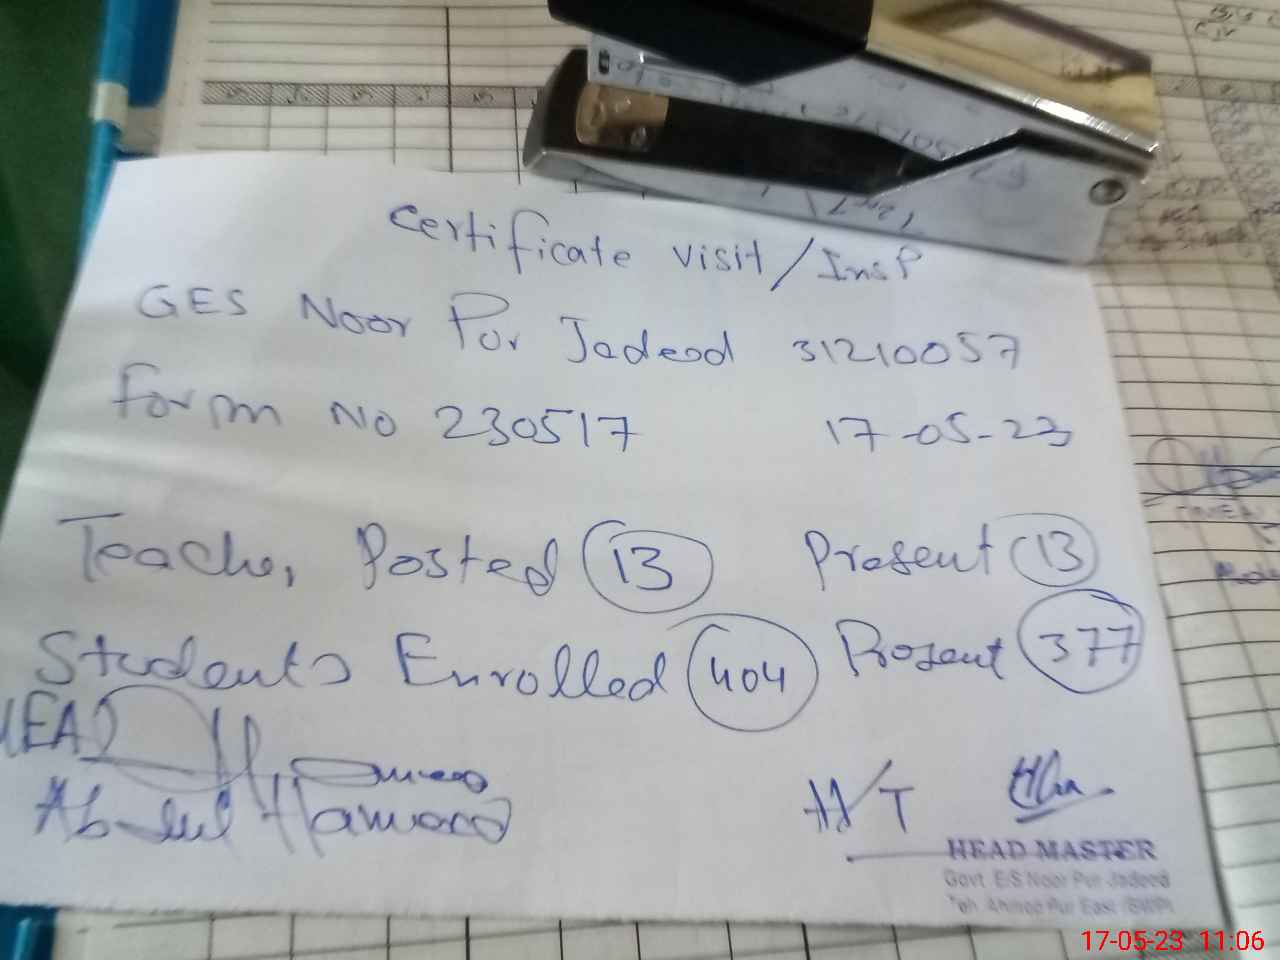 Certificate Visit/Insp
GES Noor Pur Jadeed 31210057
Form No 230517 17-05-23
Teacher Posted 13 Present 13
Students Enrolled 404 Present 377
MEA
Abdul Hameed
H/T
HEAD MASTER
Govt. E/S Noor Pur Jadeed
Teh. Ahmed Pur East (BWP)
17-05-23 11:06